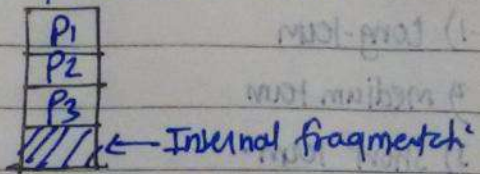 P1
P2
P3
← Internal fragmentch